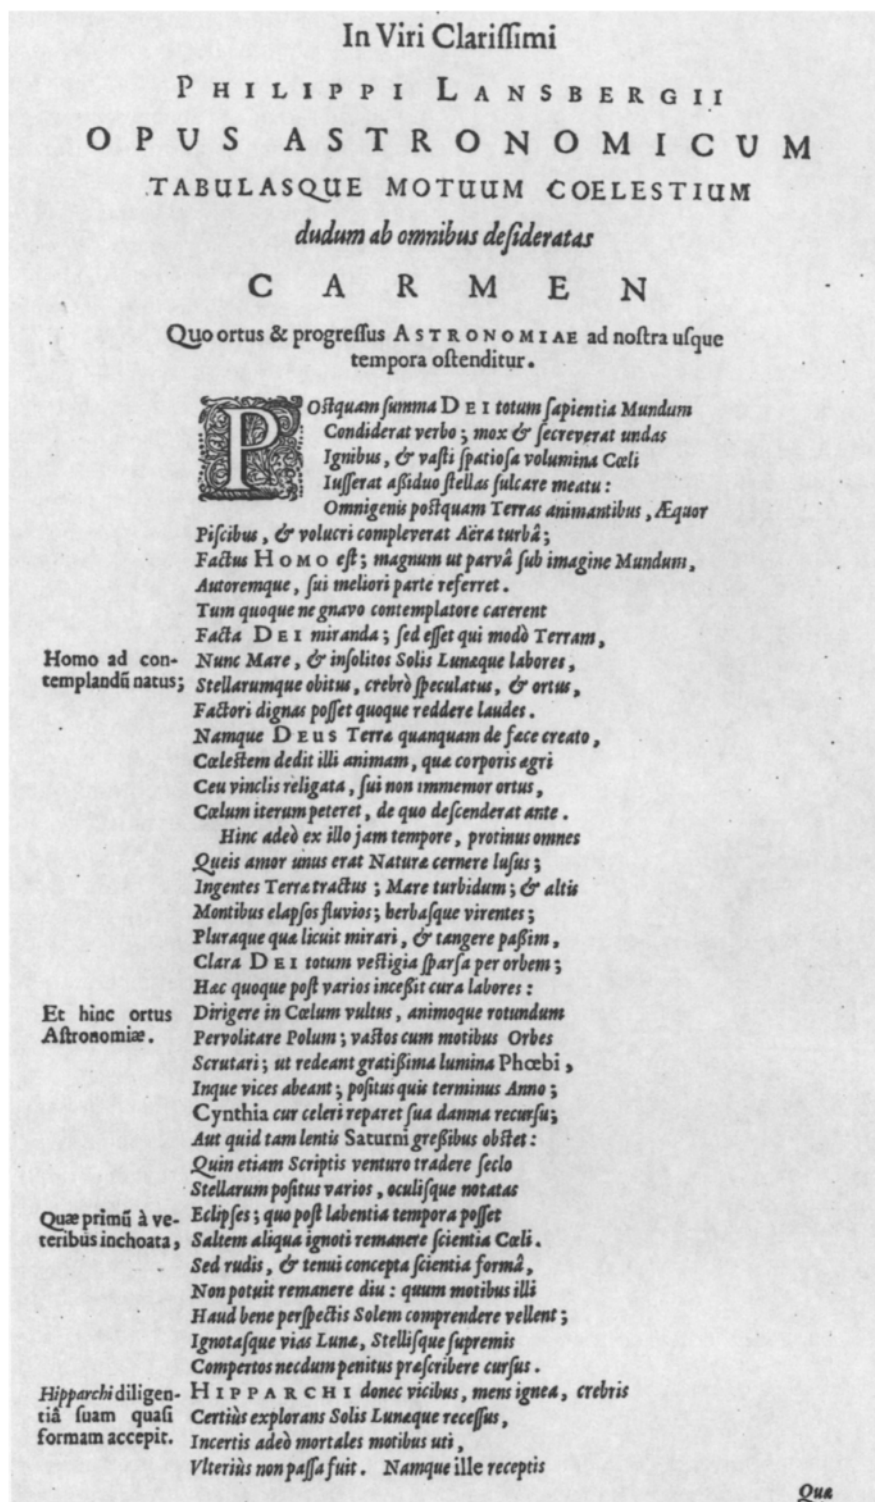 In Viri Clariſſimi
PHILIPPI LANSBERGII
OPUS ASTRONOMICUM
TABULASQUE MOTUUM COELESTIUM
dudum ab omnibus deſideratas
CARMEN
Quo ortus & progreſſus ASTRONOMIAE ad noſtra uſque
tempora oſtenditur.
POſtquam ſumma DEI totum ſapientia Mundum
Condiderat verbo; mox & ſecreverat undas
Ignibus, & vaſti ſpatioſa volumina Cœli
Iuſſerat aßiduo ſtellas ſulcare meatu:
Omnigenis poſtquam Terras animantibus, Æquor
Piſcibus, & volucri compleverat Aëra turbâ;
Factus HOMO eſt; magnum ut parvâ ſub imagine Mundum,
Autoremque, ſui meliori parte referret.
Tum quoque ne gnavo contemplatore carerent
Facta DEI miranda; ſed eſſet qui modò Terram,
Homo ad con-
templandũ natus;
Nunc Mare, & inſolitos Solis Lunæque labores,
Stellarumque obitus, crebrò ſpeculatus, & ortus,
Factori dignas poſſet quoque reddere laudes.
Namque DEUS Terræ quanquam de fæce creato,
Cœleſtem dedit illi animam, quæ corporis ægri
Ceu vinclis religata, ſui non immemor ortus,
Cœlum iterum peteret, de quo deſcenderat ante.
Hinc adeò ex illo jam tempore, protinus omnes
Queis amor unus erat Naturæ cernere luſus;
Ingentes Terræ tractus; Mare turbidum; & altis
Montibus elapſos fluvios; herbaſque virentes;
Pluraque quæ licuit mirari, & tangere paßim,
Clara DEI totum veſtigia ſparſa per orbem;
Hac quoque poſt varios inceßit cura labores:
Et hinc ortus
Aſtronomiæ.
Dirigere in Cœlum vultus, animoque rotundum
Pervolitare Polum; vaſtos cum motibus Orbes
Scrutari; ut redeant gratißima lumina Phœbi,
Inque vices abeant; poſitus quis terminus Anno;
Cynthia cur celeri reparet ſua damna recurſu;
Aut quid tam lentis Saturni greßibus obſtet:
Quin etiam Scriptis venturo tradere ſeclo
Stellarum poſitus varios, oculiſque notatas
Quæ primũ à ve-
teribus inchoata,
Eclipſes; quo poſt labentia tempora poſſet
Saltem aliqua ignoti remanere ſcientia Cœli.
Sed rudis, & tenui concepta ſcientia formâ,
Non potuit remanere diu: quum motibus illi
Haud bene perſpectis Solem comprendere vellent;
Ignotaſque vias Lunæ, Stelliſque ſupremis
Compertos necdum penitus præſcribere curſus.
Hipparchi diligen-
tiâ ſuam quaſi
formam accepit.
HIPPARCHI donec vicibus, mens ignea, crebris
Certiùs explorans Solis Lunæque receſſus,
Incertis adeò mortales motibus uti,
Vlteriùs non paſſa fuit. Namque ille receptis
Quæ